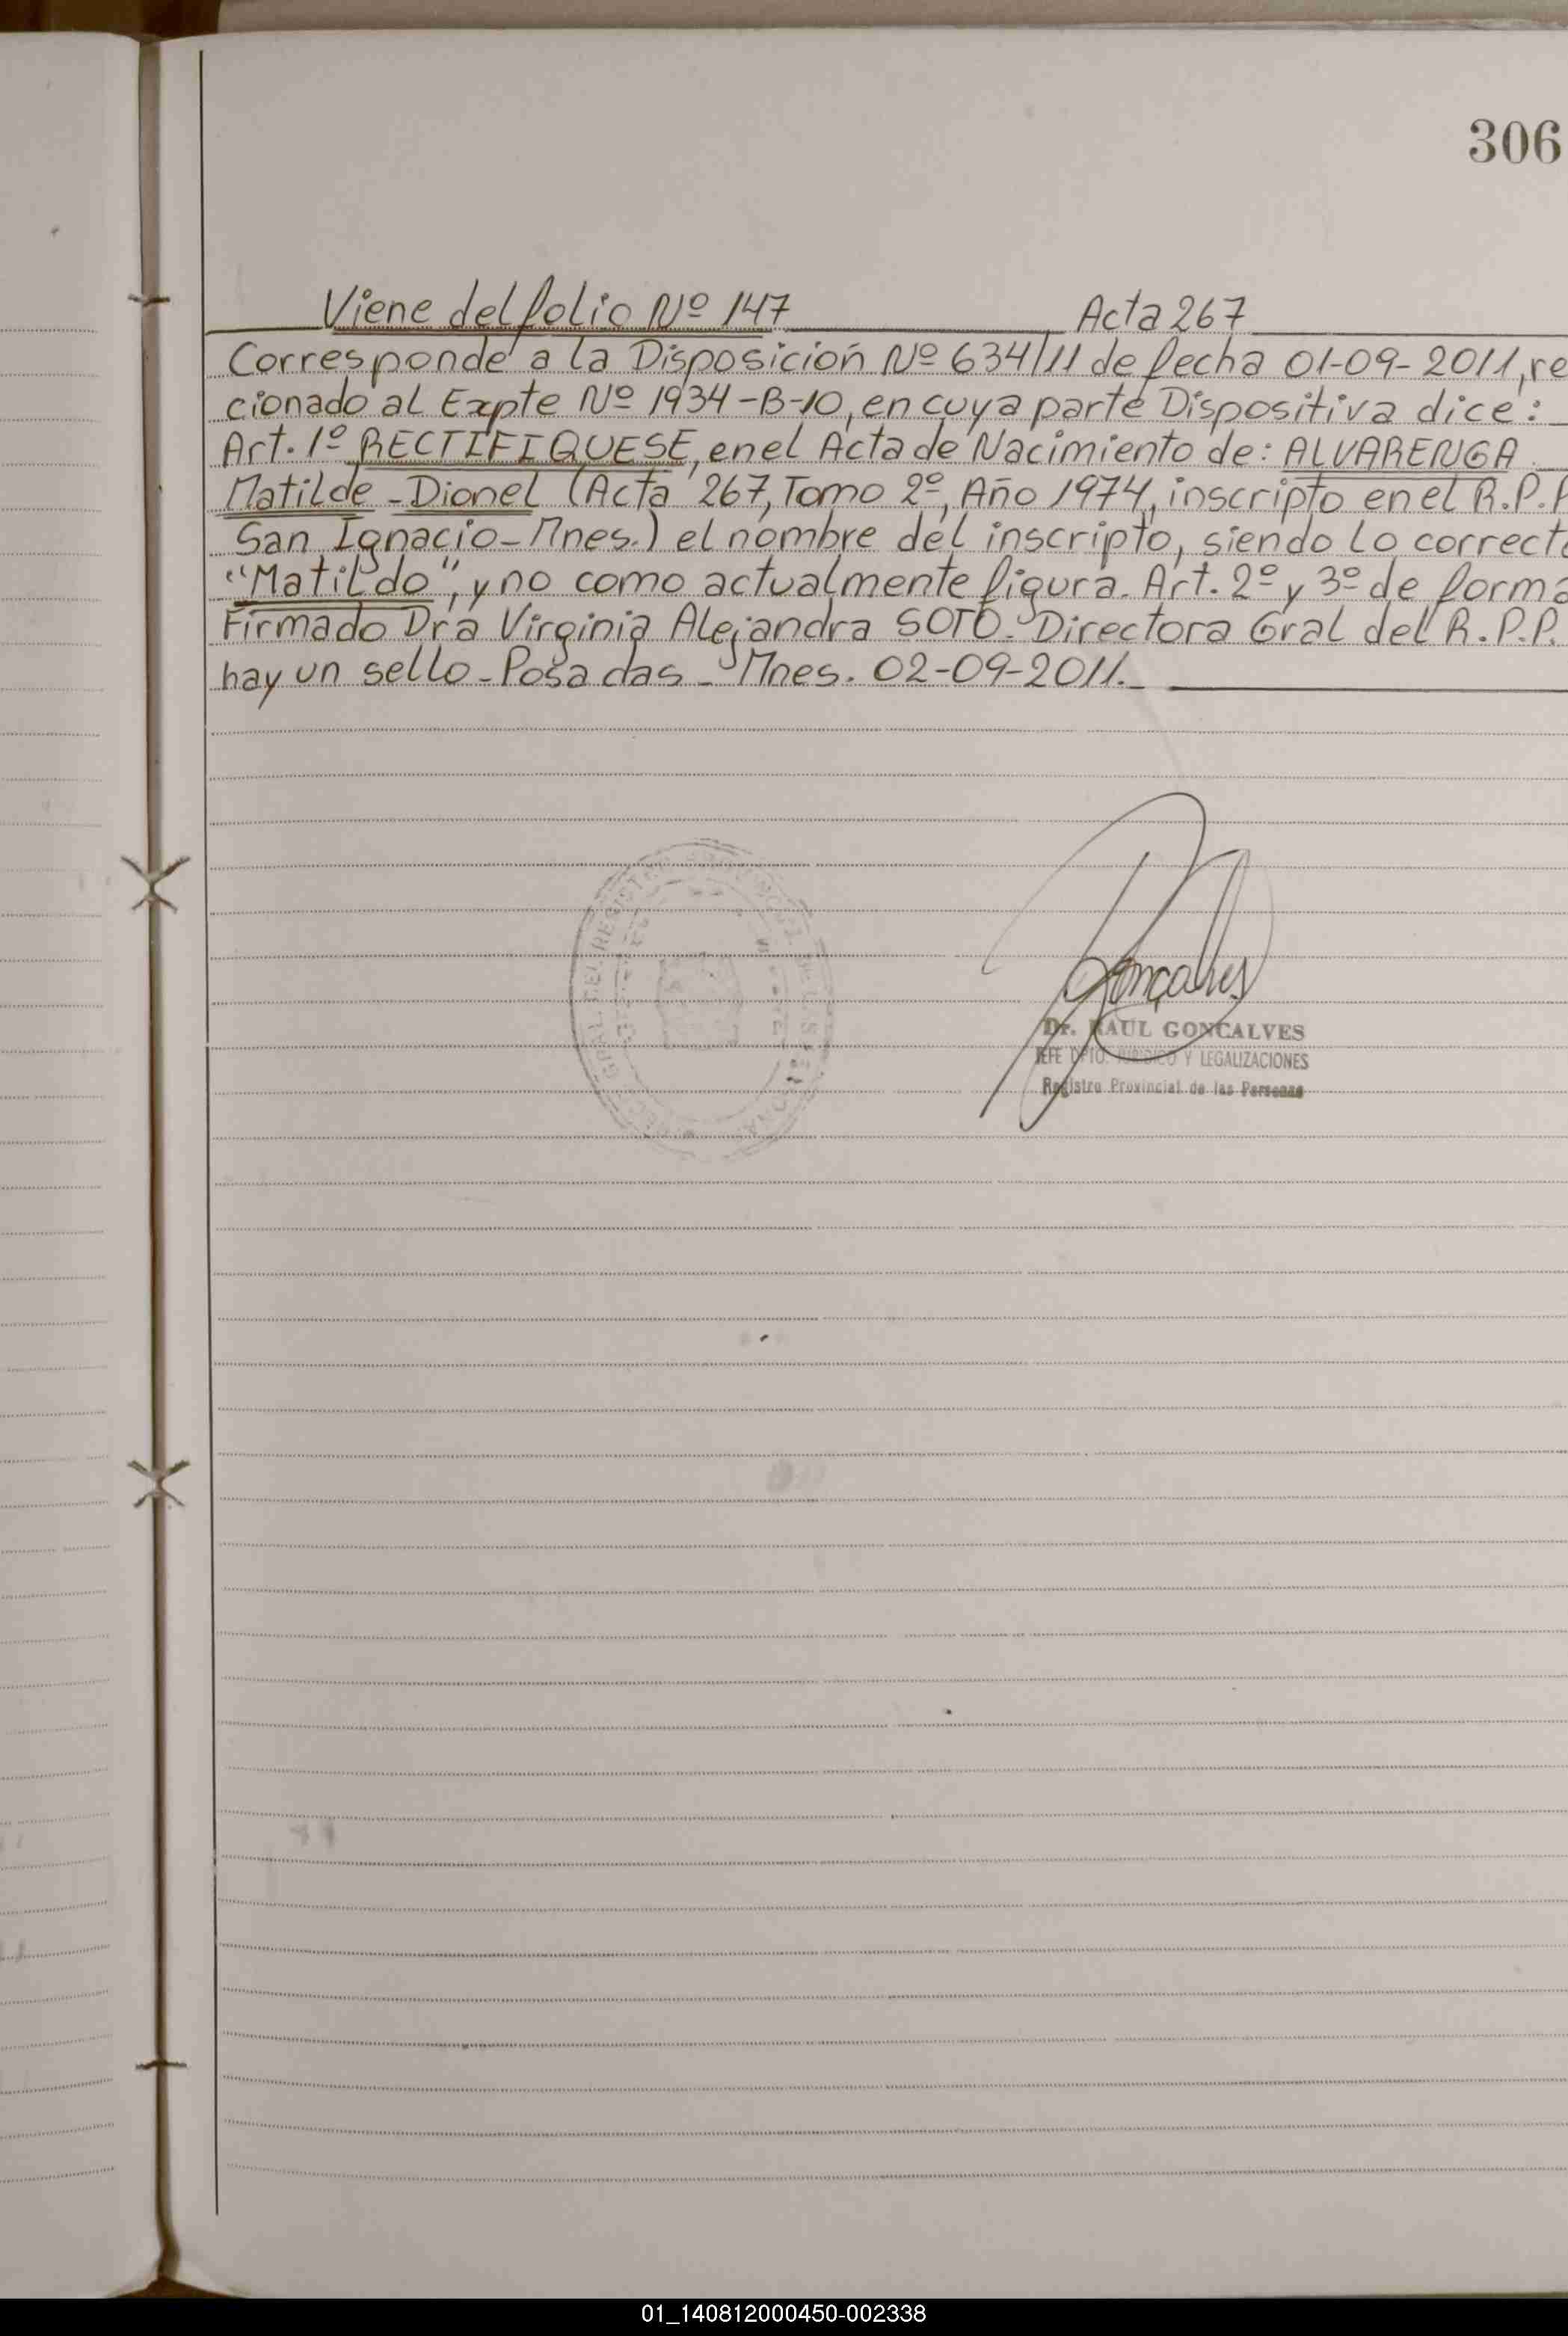 306
Viene del folio Nº 147 Acta 267
Corresponde a la Disposición Nº 634/11 de fecha 01-09-2011, re
cionado al Expte Nº 1934-B-10, en cuya parte Dispositiva dice:
Art. 1º RECTIFIQUESE, en el Acta de Nacimiento de: ALVARENGA
Matilde - Dionel (Acta 267, Tomo 2º, Año 1974, inscripto en el R.P.P
San Ignacio - Mnes.) el nombre del inscripto, siendo lo correcto
"Matildo", y no como actualmente figura. Art. 2º y 3º de forma
Firmado Dra Virginia Alejandra SOTO. Directora Gral del R.P.P.
hay un sello - Posadas - Mnes. 02-09-2011.
Gonçalves
Dr. RAUL GONCALVES
JEFE DPTO. JURIDICO Y LEGALIZACIONES
Registro Provincial de las Personas
01_140812000450-002338